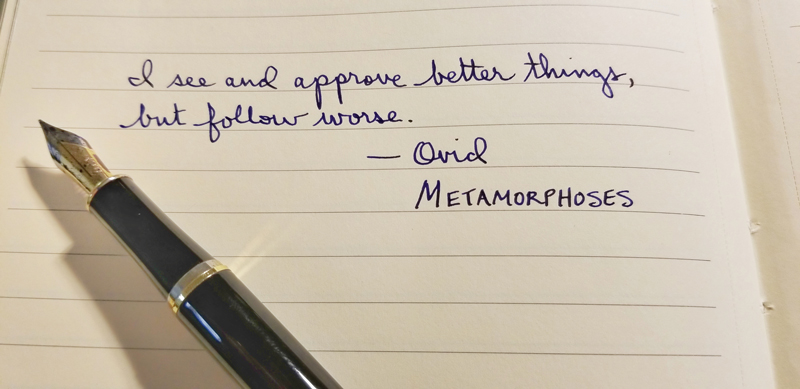 I see and approve better things,
but follow worse.
— Ovid
METAMORPHOSES